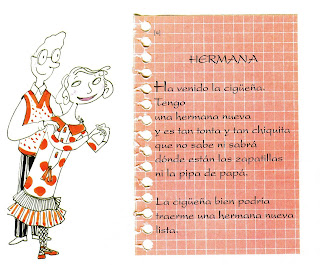 HERMANA
Ha venido la cigüeña.
Tengo
una hermana nueva
y es tan tonta y tan chiquita
que no sabe ni sabrá
dónde están las zapatillas
ni la pipa de papá.
La cigüeña bien podría
traerme una hermana nueva
lista.